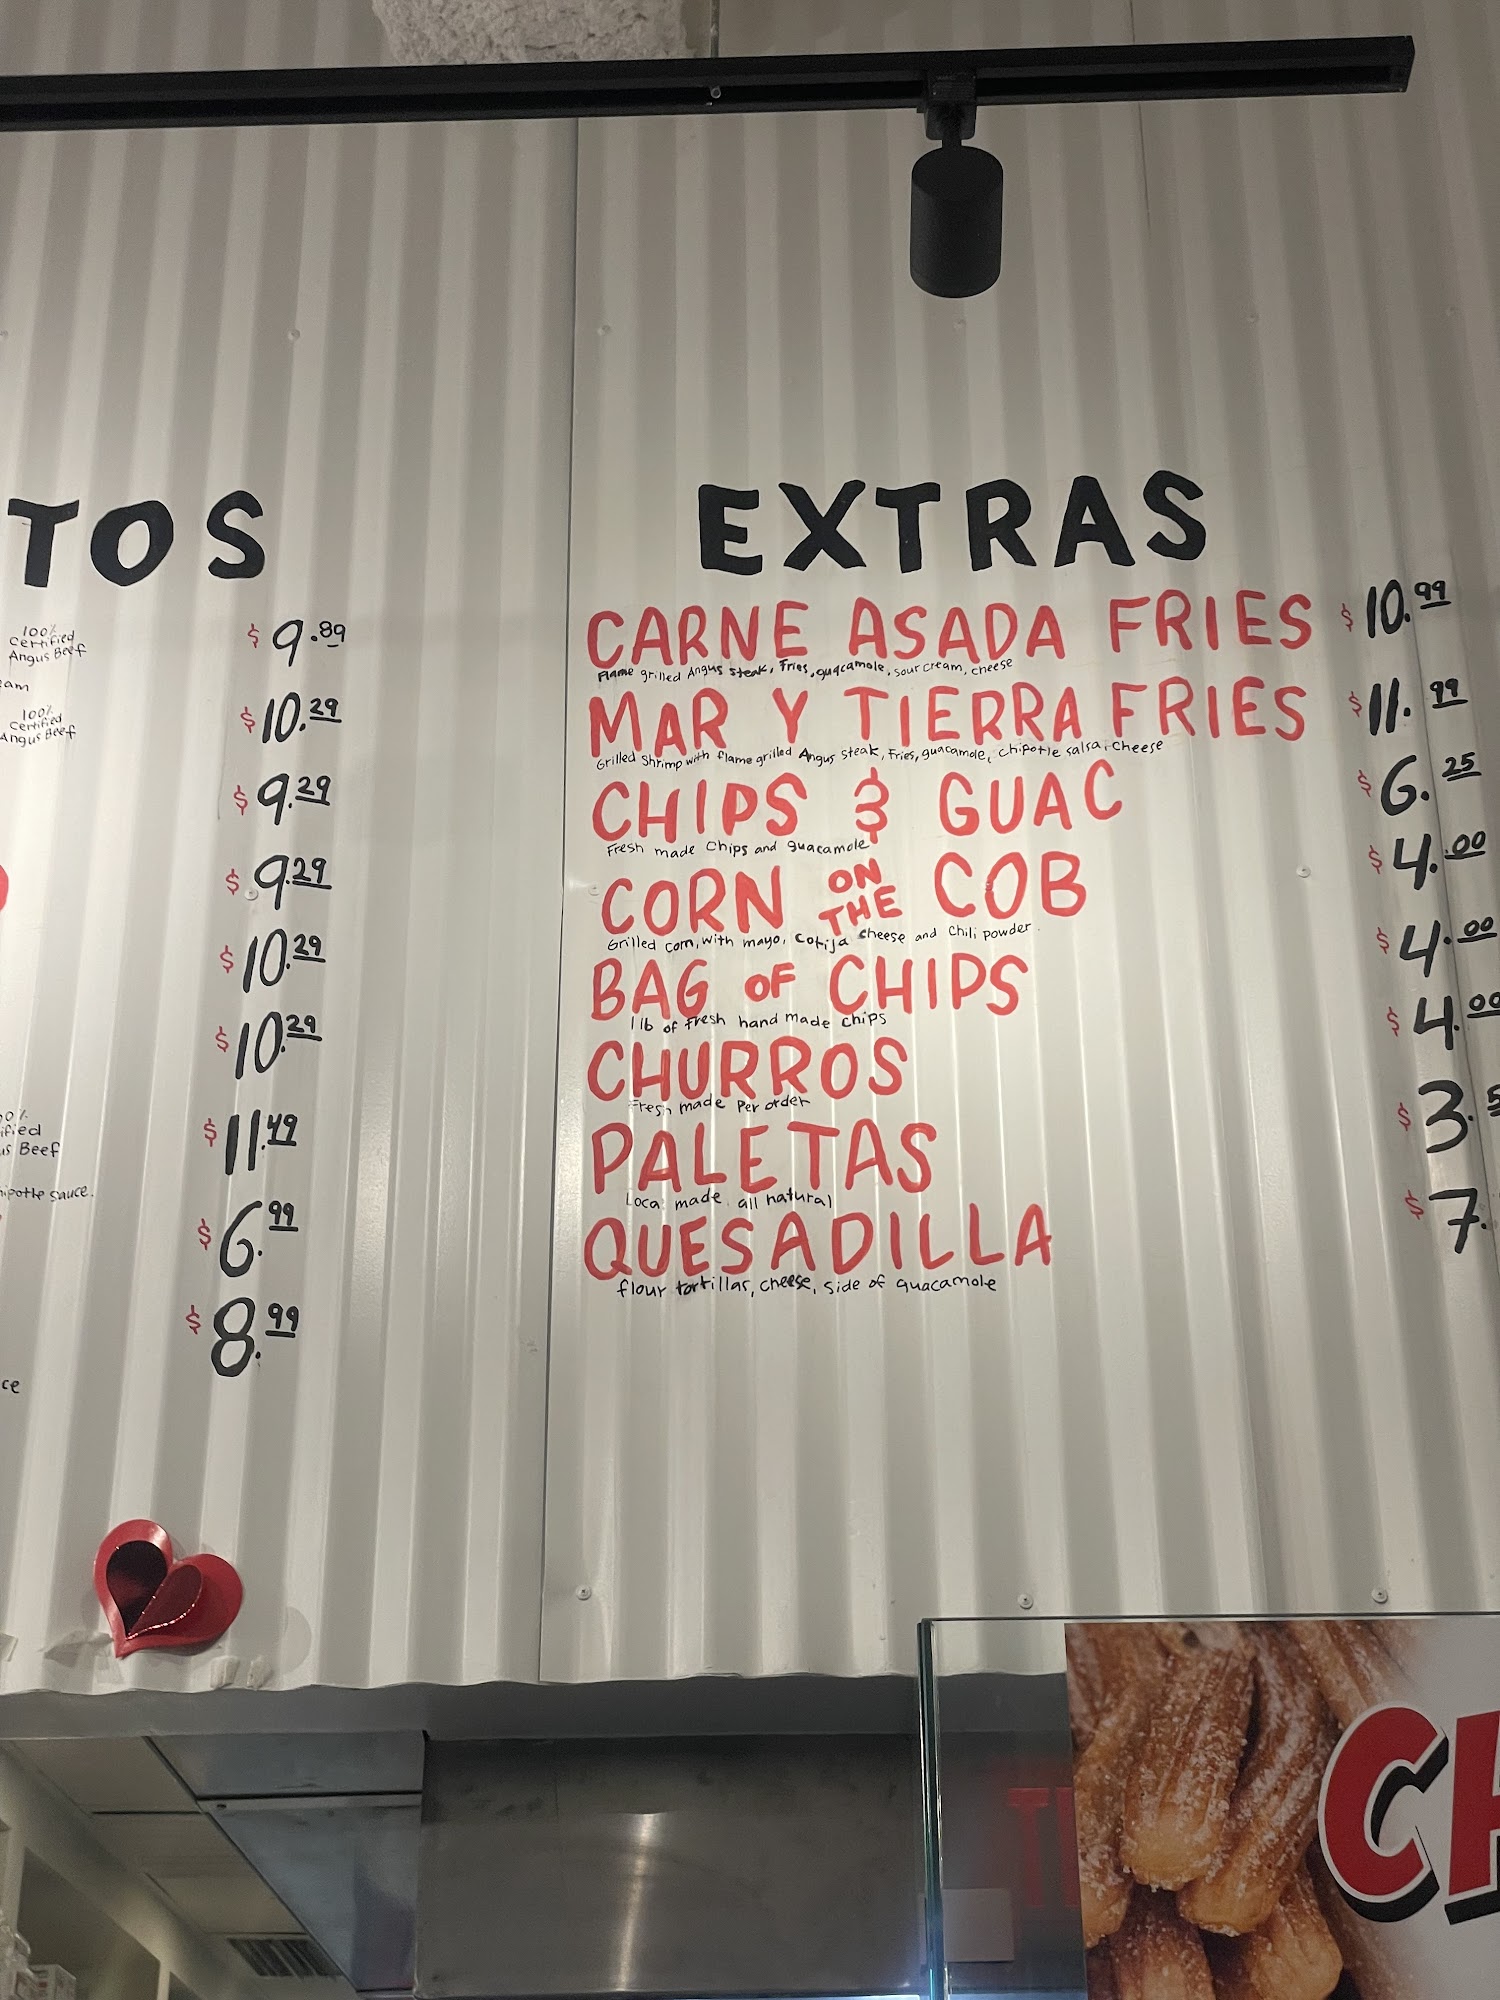 TOS
100%
Certified
Angus Beef
$ 9.89
am
100%
Certified
Angus Beef
$ 10.29
$ 9.29
$ 9.29
$ 10.29
$ 10.29
$ 11.49
us Beef
ipotle sauce.
$ 6.99
$ 8.99
ce
EXTRAS
CARNE ASADA FRIES $ 10.99
Flame grilled Angus steak, Fries, guacamole, sour cream, cheese
MAR Y TIERRA FRIES $ 11.99
Grilled Shrimp with flame grilled Angus steak, Fries, guacamole, chipotle salsa, cheese
CHIPS & GUAC $ 6.25
Fresh made Chips and guacamole
CORN ON THE COB $ 4.00
Grilled corn, with mayo, cotija cheese and Chili powder.
BAG OF CHIPS $ 4.00
1 lb of Fresh hand made chips
CHURROS $ 4.00
Fresh made Per order
PALETAS $ 3.5
Local made all natural
QUESADILLA $ 7.
flour tortillas, cheese, side of guacamole
CH